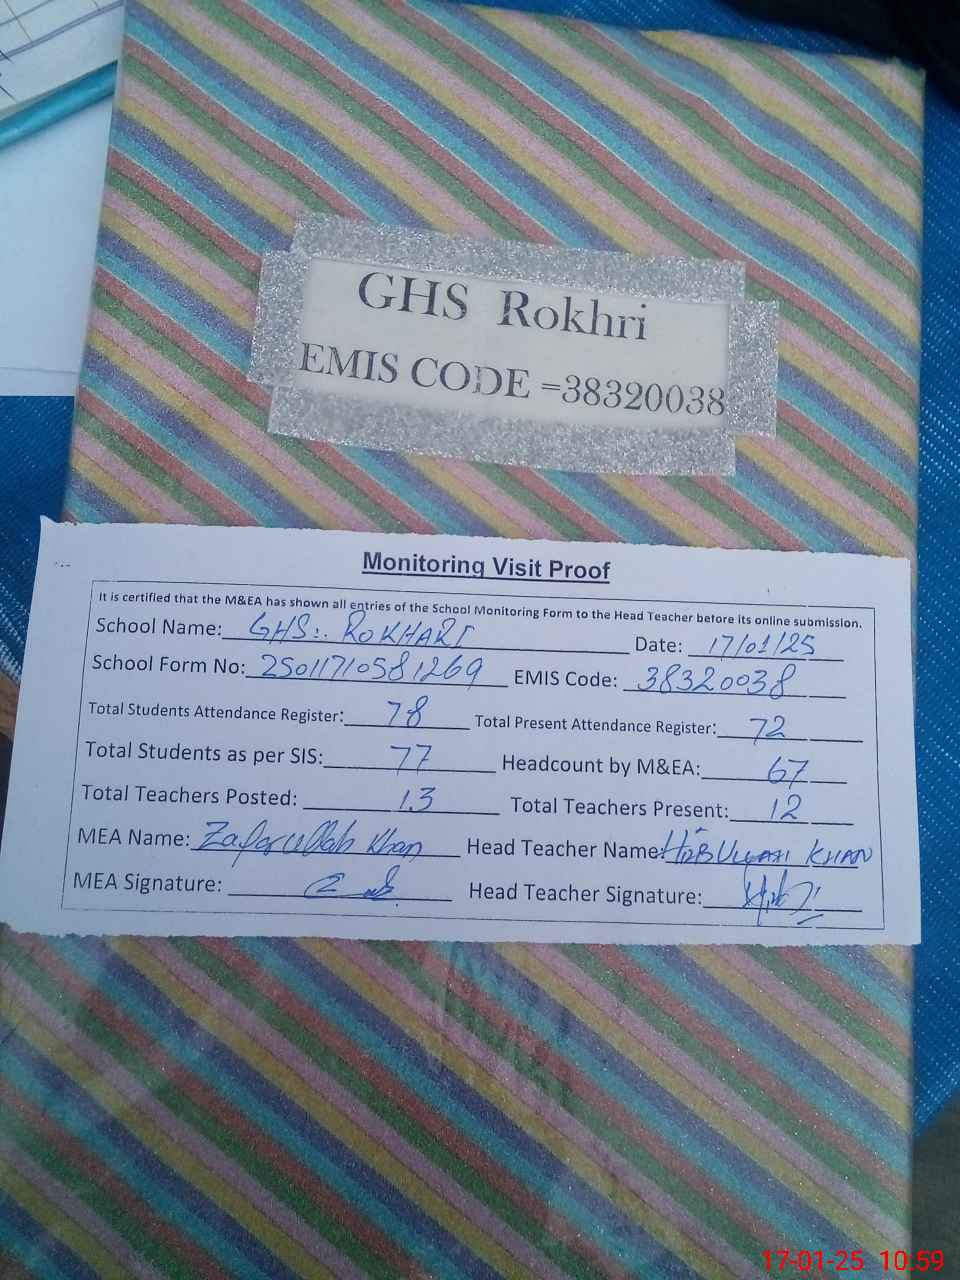 GHS Rokhri
EMIS CODE =38320038
Monitoring Visit Proof
It is certified that the M&EA has shown all entries of the School Monitoring Form to the Head Teacher before its online submission.
School Name: GHS:. ROKHARI Date: 17/01/25
School Form No: 25011710581269 EMIS Code: 38320038
Total Students Attendance Register: 78 Total Present Attendance Register: 72
Total Students as per SIS: 77 Headcount by M&EA: 67
Total Teachers Posted: 13 Total Teachers Present: 12
MEA Name: Zafarullah Khan Head Teacher Name: KHAN
MEA Signature: Head Teacher Signature:
17-01-25 10:59